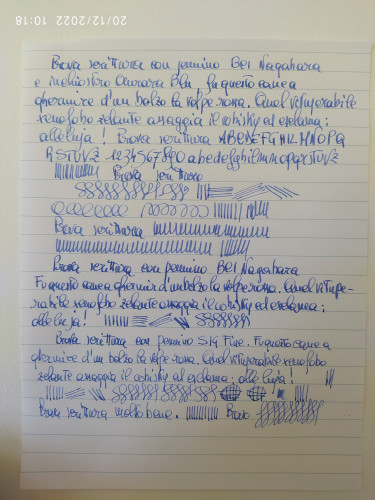 20/12/2022 10:18
Prova scrittura con pennino BEI Nagahara
e inchiostro Aurora Blu. Fu questo cane a
ghermire d'un balzo la volpe rossa. Quel vituperabile
xenofobo zelante assaggia il whisky ed esclama:
alleluja! Prova scrittura ABCDEFGHILMNOPQ
RSTUVZ 1234567890 abcdefghilmnopqrstuvz
Prova scrittura
Prova scrittura
Prova scrittura con pennino BEI Nagahara
Fu questo cane a ghermire d'un balzo la volpe rossa. Quel vitupe-
rabile xenofobo zelante assaggia il whisky ed esclama:
alleluja!
Prova scrittura con pennino SIG Fine. Fu questo cane a
ghermire d'un balzo la volpe rossa. Quel vituperabile xenofobo
zelante assaggia il whisky ed esclama: alleluja!
Prova scrittura molto bene. Bravo